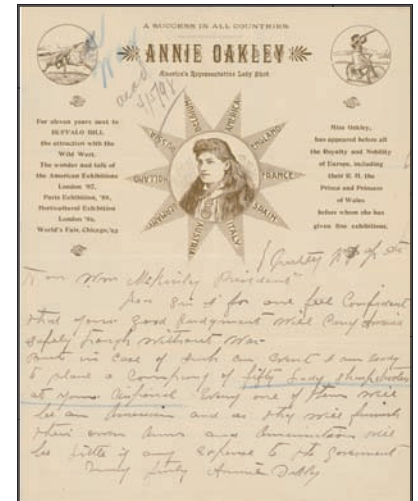 A SUCCESS IN ALL COUNTRIES.
ANNIE OAKLEY
America's Representative Lady Shot
For eleven years next to
BUFFALO BILL
the attraction with the
Wild West.
The wonder and talk of
the American Exhibitions
London '87.
Paris Exhibition, '89,
Horticultural Exhibition
London '92.
World's Fair, Chicago, '93
BELGIUM
AMERICA
ENGLAND
FRANCE
SPAIN
ITALY
AUSTRIA
GERMANY
HOLLAND
RUSSIA
Miss Oakley,
has appeared before all
the Royalty and Nobility
of Europe, including
their R. H. the
Prince and Princess
of Wales
before whom she has
given five exhibitions.
ackd
4/5/98
Hon Wm McKinley President
Dear Sir I for one feel Confident
that your good judgment will carry America
safely through without War
But in case of such an Event I am ready
to place a Company of fifty lady sharpshooters
at your disposal Every one of them will
be an American and as they will furnish
their own Arms and Ammunition will
be little if any expense to the Government
Very Truly Annie Oakley